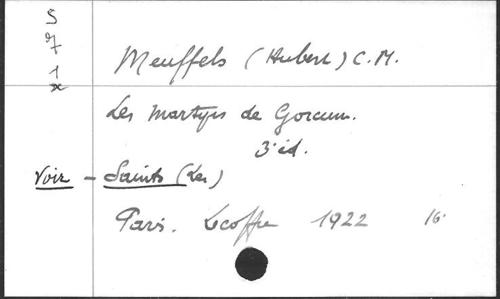 S
7
1
x
Meuffels (Hubert) C.M.
Les Martyrs de Gorcum.
3e éd.
Voir - Saints (Les)
Paris. Lecoffre 1922 16.